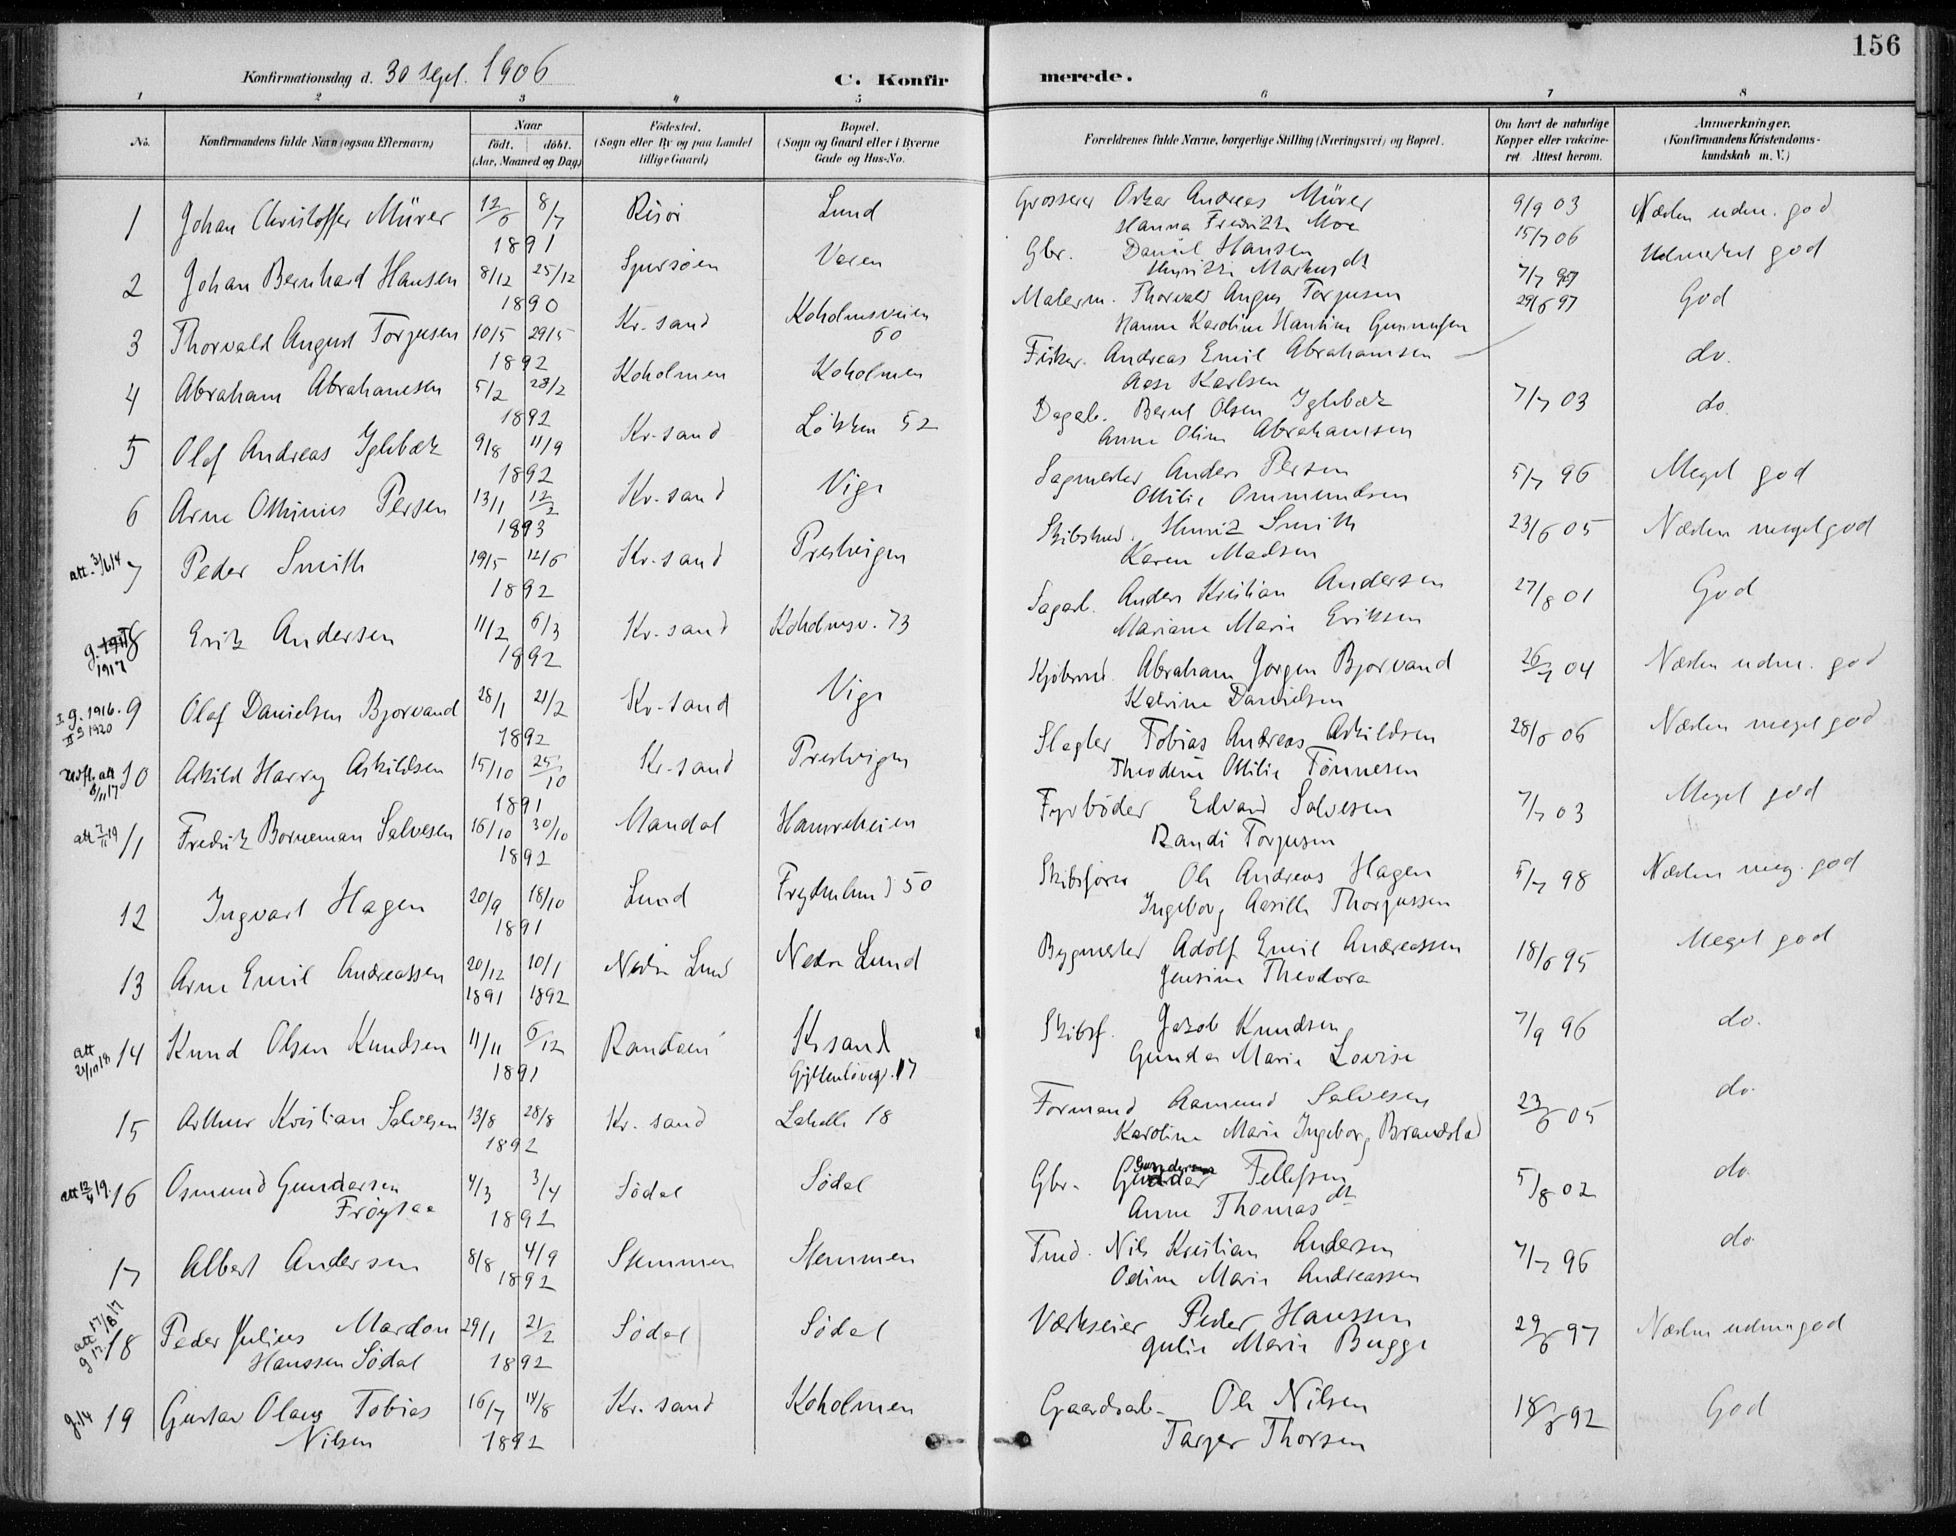 156
Konfirmationsdag d. 30 sept. 1906
C. Konfirmerede.
1 2 3 4 5 6 7 8
No.
Konfirmandens fulde Navn (ogsaa Efternavn)
Naar
født. døbt.
(Aar, Maaned og Dag)
Fødested.
(Sogn eller By og paa Landet tillige Gaard)
Bopæl.
(Sogn og Gaard eller i Byerne Gade og Hus-No.
Forældrenes fulde Navne, borgerlige Stilling (Næringsvei) og Bopæl.
Om havt de naturlige Kopper eller vakcineret. Attest herom.
Anmærkninger.
(Konfirmandens Kristendomskundskab m. V.)
1 Johan Christoffer Mürer 12/6 8/7 1891 Risör Lund Grosserer Oskar Andreas Mürer 9/9 03 Næsten udm. god
Hanna Fredrikke Moe
2 Johan Bernhard Hansen 8/12 25/12 1890 Gbr. Daniel Hansen 15/7 06 Udmerket god
3 Thorvald August Torjusen 10/5 29/5 1892 Kr. sand Koholmsveien 60 Malerm. Thorvald August Torjusen 29/6 97 God
Hanne Karoline Gunnufsen
4 Abraham Abrahamsen 5/2 28/2 1892 Koholmen Koholmen Fisker. Andreas Emil Abrahamsen do.
Aase Karlsen
5 Olaf Andreas Iglebæk 9/8 11/9 1892 Kr. sand 52 Dagarb. Bernt Olsen Iglebæk 7/7 03 do.
Anne Oline Abrahamsen
6 Arne Othinius Persen 13/1 12/2 1893 Kr. sand Vige Sagmester Anders Persen 5/7 96 Meget god
Ottilie Ommundsen
att. 3/6 14 7 Peder Smith 19/5 12/6 1892 Kr. sand Prestvigen Henrik Smith 23/6 05 Næsten meget god
Karen Madsen
g. 1917 8 Erik Andersen 11/2 6/3 1892 Kr. sand Koholmsv. 73 Sagarb. Anders Kristian Andersen 27/8 01 God
Mariane Marie Eriksen
I g. 1916. II g 1920 9 Olaf Danielsen Bjorvand 28/1 21/2 1892 Kr. sand Vige Kjøbmd. Abraham Jørgen Bjorvand 26/7 04 Næsten udm. god
Katrine Danielsen
10 Askild Harry Askildsen 15/10 25/10 1891 Kr. sand Prestvigen Slagter Tobias Andreas Askildsen 28/6 06 Næsten meget god
Theodine Ottilie Tönnesen
11 Fredrik Borneman Salvesen 16/10 30/10 1892 Mandal Hamreheien Fyrbøder Edvard Salvesen 7/7 03 Meget god
Randi Torjusen
12 Ingvart Hagen 20/9 18/10 1891 Lund Frydenlund 50 Skibsfører Ole Andreas Hagen 5/7 98 Næsten meg. god
Ingeborg Aasille Thorjussen
13 Arne Emil Andreassen 20/12 1891 10/1 1892 Nedre Lund Nedre Lund Bygmester Adolf Emil Andreassen 18/6 95 Meget god
Jensine Theodora
att 21/10 18 14 Knud Olsen Knudsen 11/11 6/12 1891 Randøen Krsand Gyldenløvesg. 17 Skibsf. Jakob Knudsen 7/9 96 do.
Gunda Marie Lovise
15 Arthur Kristian Salvesen 13/8 28/8 1892 Kr. sand Lahelle 18 Formand Aamund Salvesen 23/6 05 do.
Karoline Marie Ingeborg Brandslad
att 12/4 19. 16 Osmund Gundersen Frøysaa 4/3 3/4 1892 Södal Södal Gbr. Gunder Tellefsen 5/8 02 do
Anne Thomasdt
17 Albert Andersen 8/8 4/9 1892 Stemmen Stemmen Tmd. Nils Kristian Andersen 7/7 96 do.
Odine Marie Andreassen
18 Peder Julius Mardon Hanssen Södal 29/1 21/2 1892 Södal Södal Værkseier Peder Hanssen 29/6 97 Næsten udm god
Julie Marie Bugge
g. 14 19 Gustav Olaus Tobias Nilsen 16/7 14/8 1892 Kr. sand Koholmen Gaardsarb. Ole Nilsen 18/8 92 God
Tarjer Thorsen